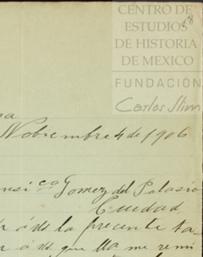 CENTRO DE
ESTUDIOS
DE HISTORIA
DE MEXICO
FUNDACIÓN
Carlos Slim
Nobiembre 4 de 1906
Gomez del Palacio
Ciudad
á ud la presente
á ud que